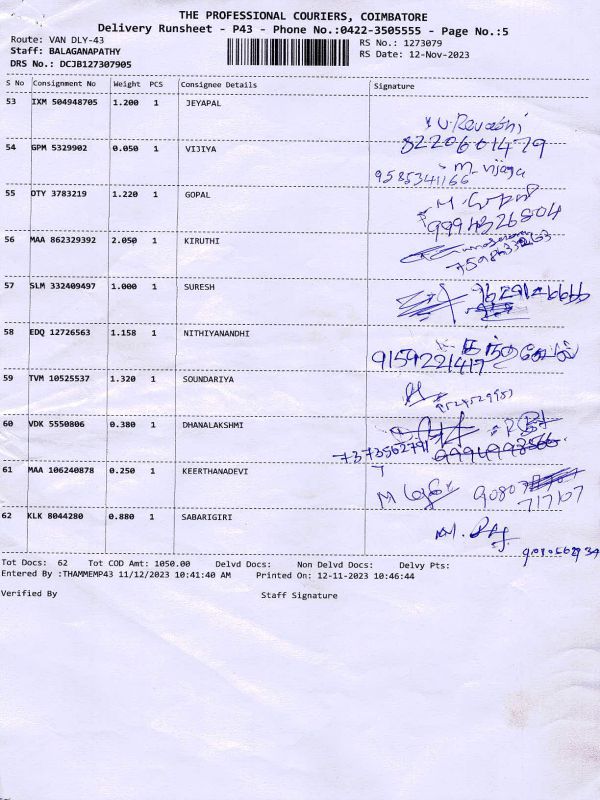 THE PROFESSIONAL COURIERS, COIMBATORE
Delivery Runsheet - P43 - Phone No.:0422-3505555 - Page No.:5
Route: VAN DLY-43 RS No.: 1273079
Staff: BALAGANAPATHY RS Date: 12-Nov-2023
DRS No.: DCJB127307905
S No Consignment No Weight PCS Consignee Details Signature
53 IXM 504948705 1.200 1 JEYAPAL
U. Revathi
8220601479
54 GPM 5329902 0.050 1 VIJIYA
M-Vijaya
9585341166
55 OTY 3783219 1.220 1 GOPAL
M. Gopal
9994326804
56 MAA 862329392 2.050 1 KIRUTHI
57 SLM 332409497 1.000 1 SURESH
58 EDQ 12726563 1.158 1 NITHIYANANDHI
9159221417
59 TVM 10525537 1.320 1 SOUNDARIYA
60 VDK 5550806 0.380 1 DHANALAKSHMI
7373562791
61 MAA 106240878 0.250 1 KEERTHANADEVI
M
90807
717107
62 KLK 8044280 0.880 1 SABARIGIRI
Tot Docs: 62 Tot COD Amt: 1050.00 Delvd Docs: Non Delvd Docs: Delvy Pts:
Entered By :THAMMEMP43 11/12/2023 10:41:40 AM Printed On: 12-11-2023 10:46:44
Verified By Staff Signature